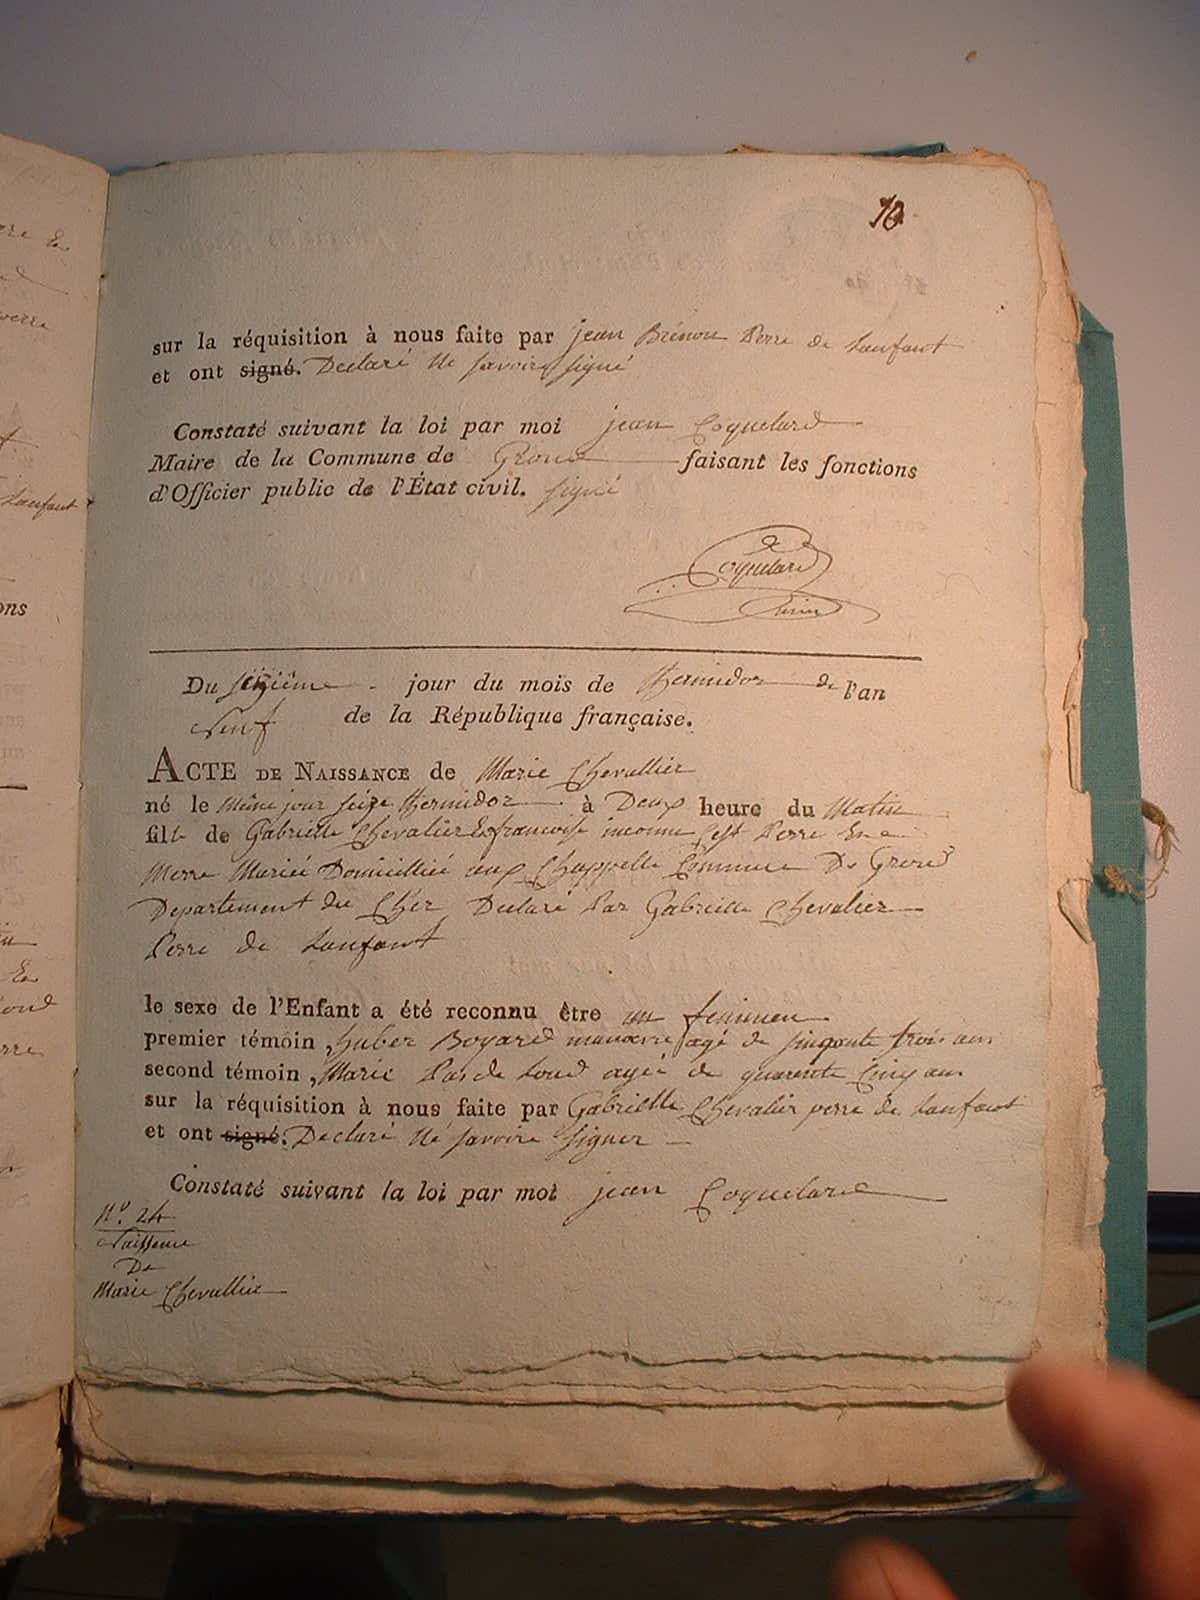 10
sur la réquisition à nous faite par jean Brénou Perre de Lanfant
et ont signé. Declaré Ne savoire signé
Constaté suivant la loi par moi jean Coquelard
Maire de la Commune de faisant les fonctions
d'Officier public de l'État civil. signé
Coquelard
Du seizieme jour du mois de thermidor de l'an
Neuf de la République française.
ACTE DE NAISSANCE de Marie Chevallier
né le Même jour seize thermidor à Deux heure du Matin
fille de Gabrielle Chevalier Et francoise inconnu Cest Perre En
Merre Mariéé Domicilliéé aux Chappelle Commune De
Departement du Cher Declaré Par Gabrielle Chevalier
Perre de Lanfant
le sexe de l'Enfant a été reconnu être un feminen
premier témoin, huber Boyard manoevre agé de sinqante trois ans
second témoin, Marie Pas de Loud agéé de quarente Cinq ans
sur la réquisition à nous faite par Gabrielle Chevalier perre de Lanfant
et ont signé. Declaré Né savoire signer
Constaté suivant la loi par moi jean Coquelard
N°. 24
Naissence
De
Marie Chevallier
ons
Lanfant